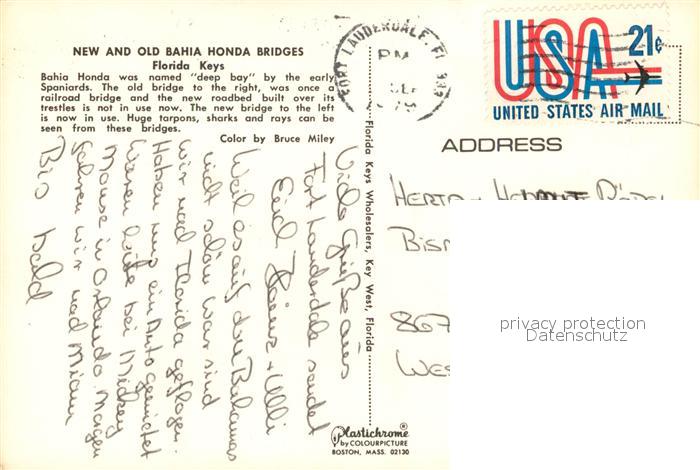 NEW AND OLD BAHIA HONDA BRIDGES
Florida Keys
Bahia Honda was named "deep bay" by the early
Spaniards. The old bridge to the right, was once a
railroad bridge and the new roadbed built over its
trestles is not in use now. The new bridge to the left
is now in use. Huge tarpons, sharks and rays can be
seen from these bridges.
Color by Bruce Miley
Viele Grüße aus
Fort Lauderdale sendet
Euch Heinz + Ulli
Weil es auf den Bahamas
nicht schön war sind
wir nach Florida geflogen.
Haben uns ein Auto gemietet
waren heute bei Mickey
Mouse in Orlando. Morgen
fahren wir nach Miami
Bis bald
Florida Keys Wholesalers, Key West, Florida
Plastichrome®
by COLOURPICTURE
BOSTON, MASS. 02130
FORT LAUDERDALE, FL 333
PM
SEP
USA 21¢
UNITED STATES AIR MAIL
ADDRESS
HERTA +
BIS
867
WES
privacy protection
Datenschutz